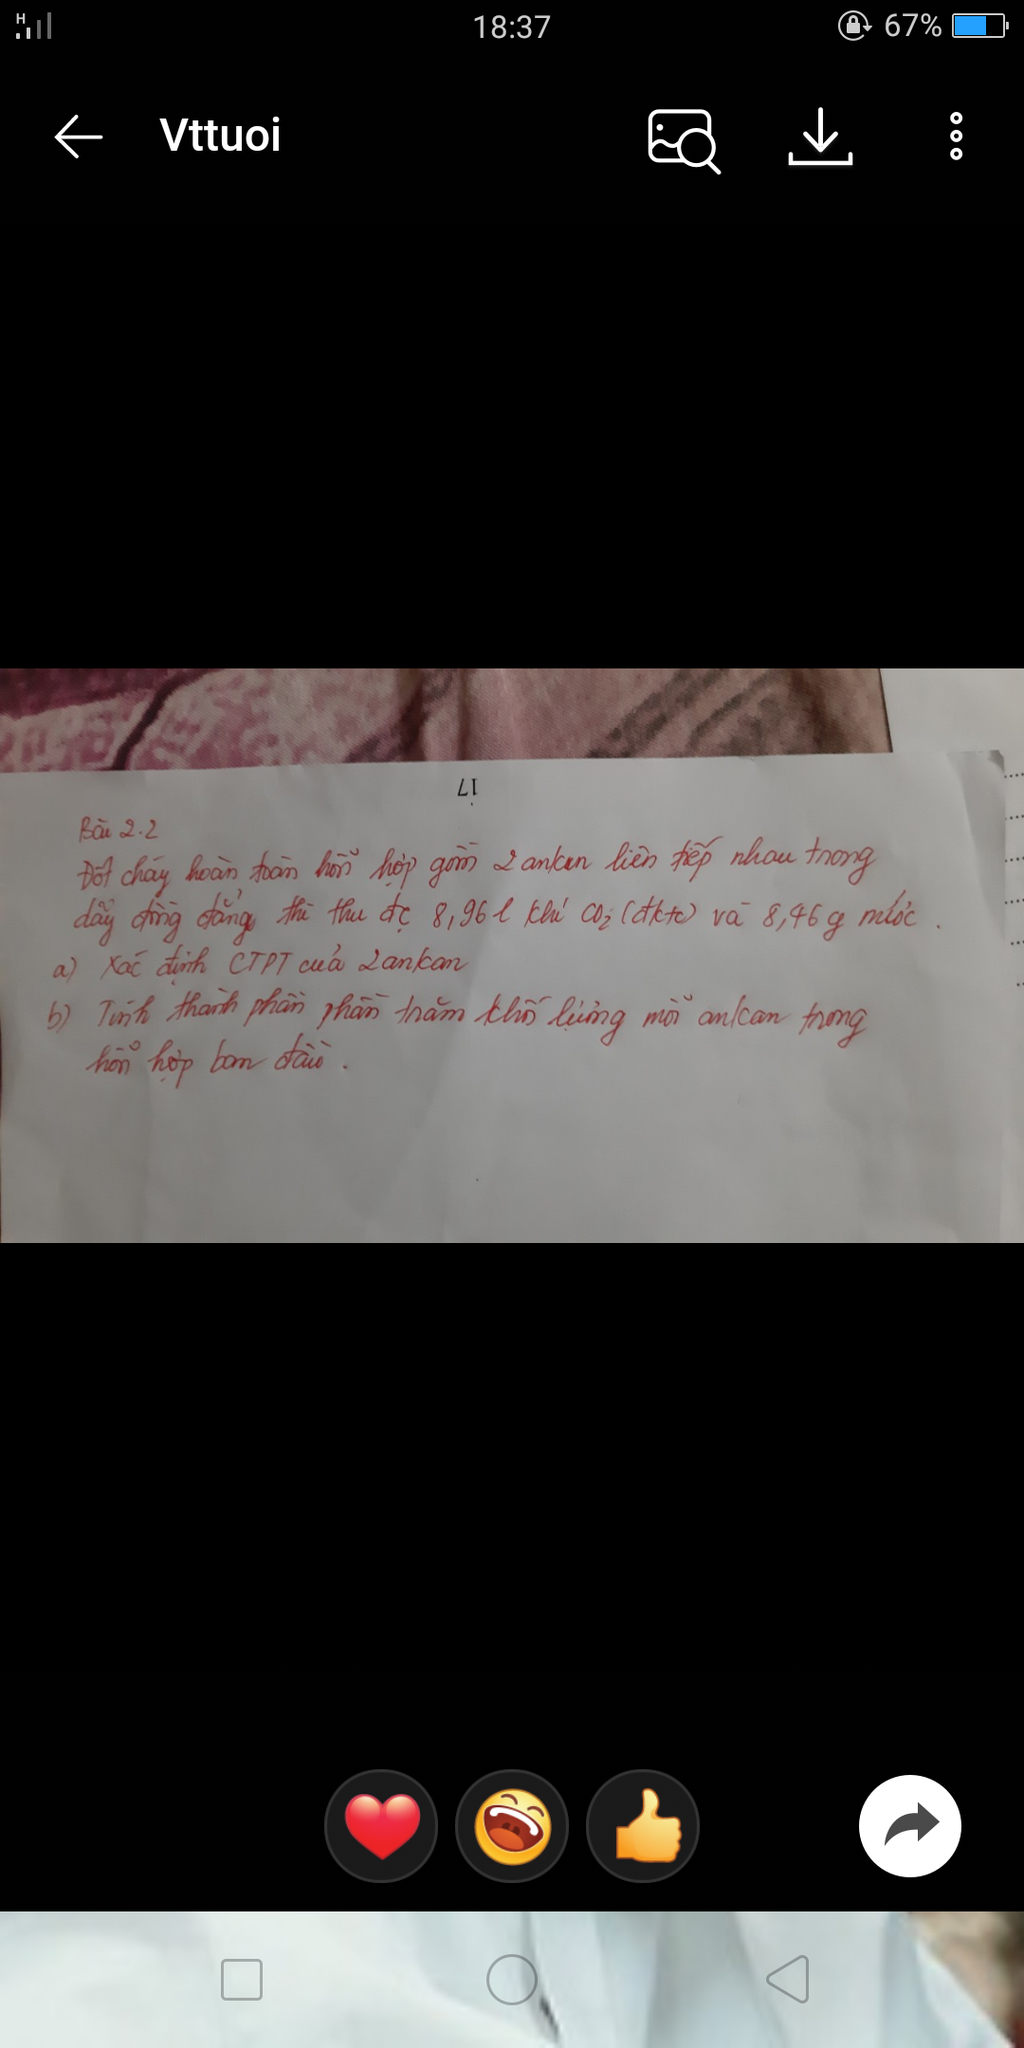 H
18:37
67%
Vttuoi
17
Bài 2.2
Đốt cháy hoàn toàn hỗn hợp gồm 2 ankan liên tiếp nhau trong
dãy đồng đẳng thì thu đc 8,96 l khí CO2 (đktc) và 8,46 g nước .
a) Xác định CTPT của 2 ankan
b) Tính thành phần phần trăm khối lượng mỗi ankan trong
hỗn hợp ban đầu .